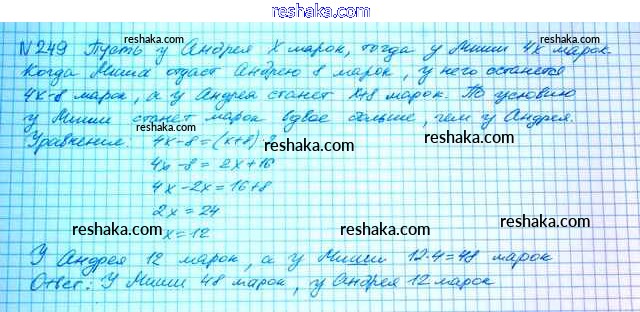 reshaka.com
№249 Пусть у Андрея x марок, тогда у Миши 4x марок.
Когда Миша отдаст Андрею 8 марок, у него останется
4x-8 марок, а у Андрея станет x+8 марок. По условию
у Миши станет марок вдвое больше, чем у Андрея.
Уравнение: 4x-8=(x+8)·2
4x-8=2x+16
4x-2x=16+8
2x=24
x=12
У Андрея 12 марок, а у Миши 12·4=48 марок
Ответ: У Миши 48 марок, у Андрея 12 марок
reshaka.com
reshaka.com
reshaka.com
reshaka.com
reshaka.com
reshaka.com
reshaka.com
reshaka.com
reshaka.com
reshaka.com
reshaka.com